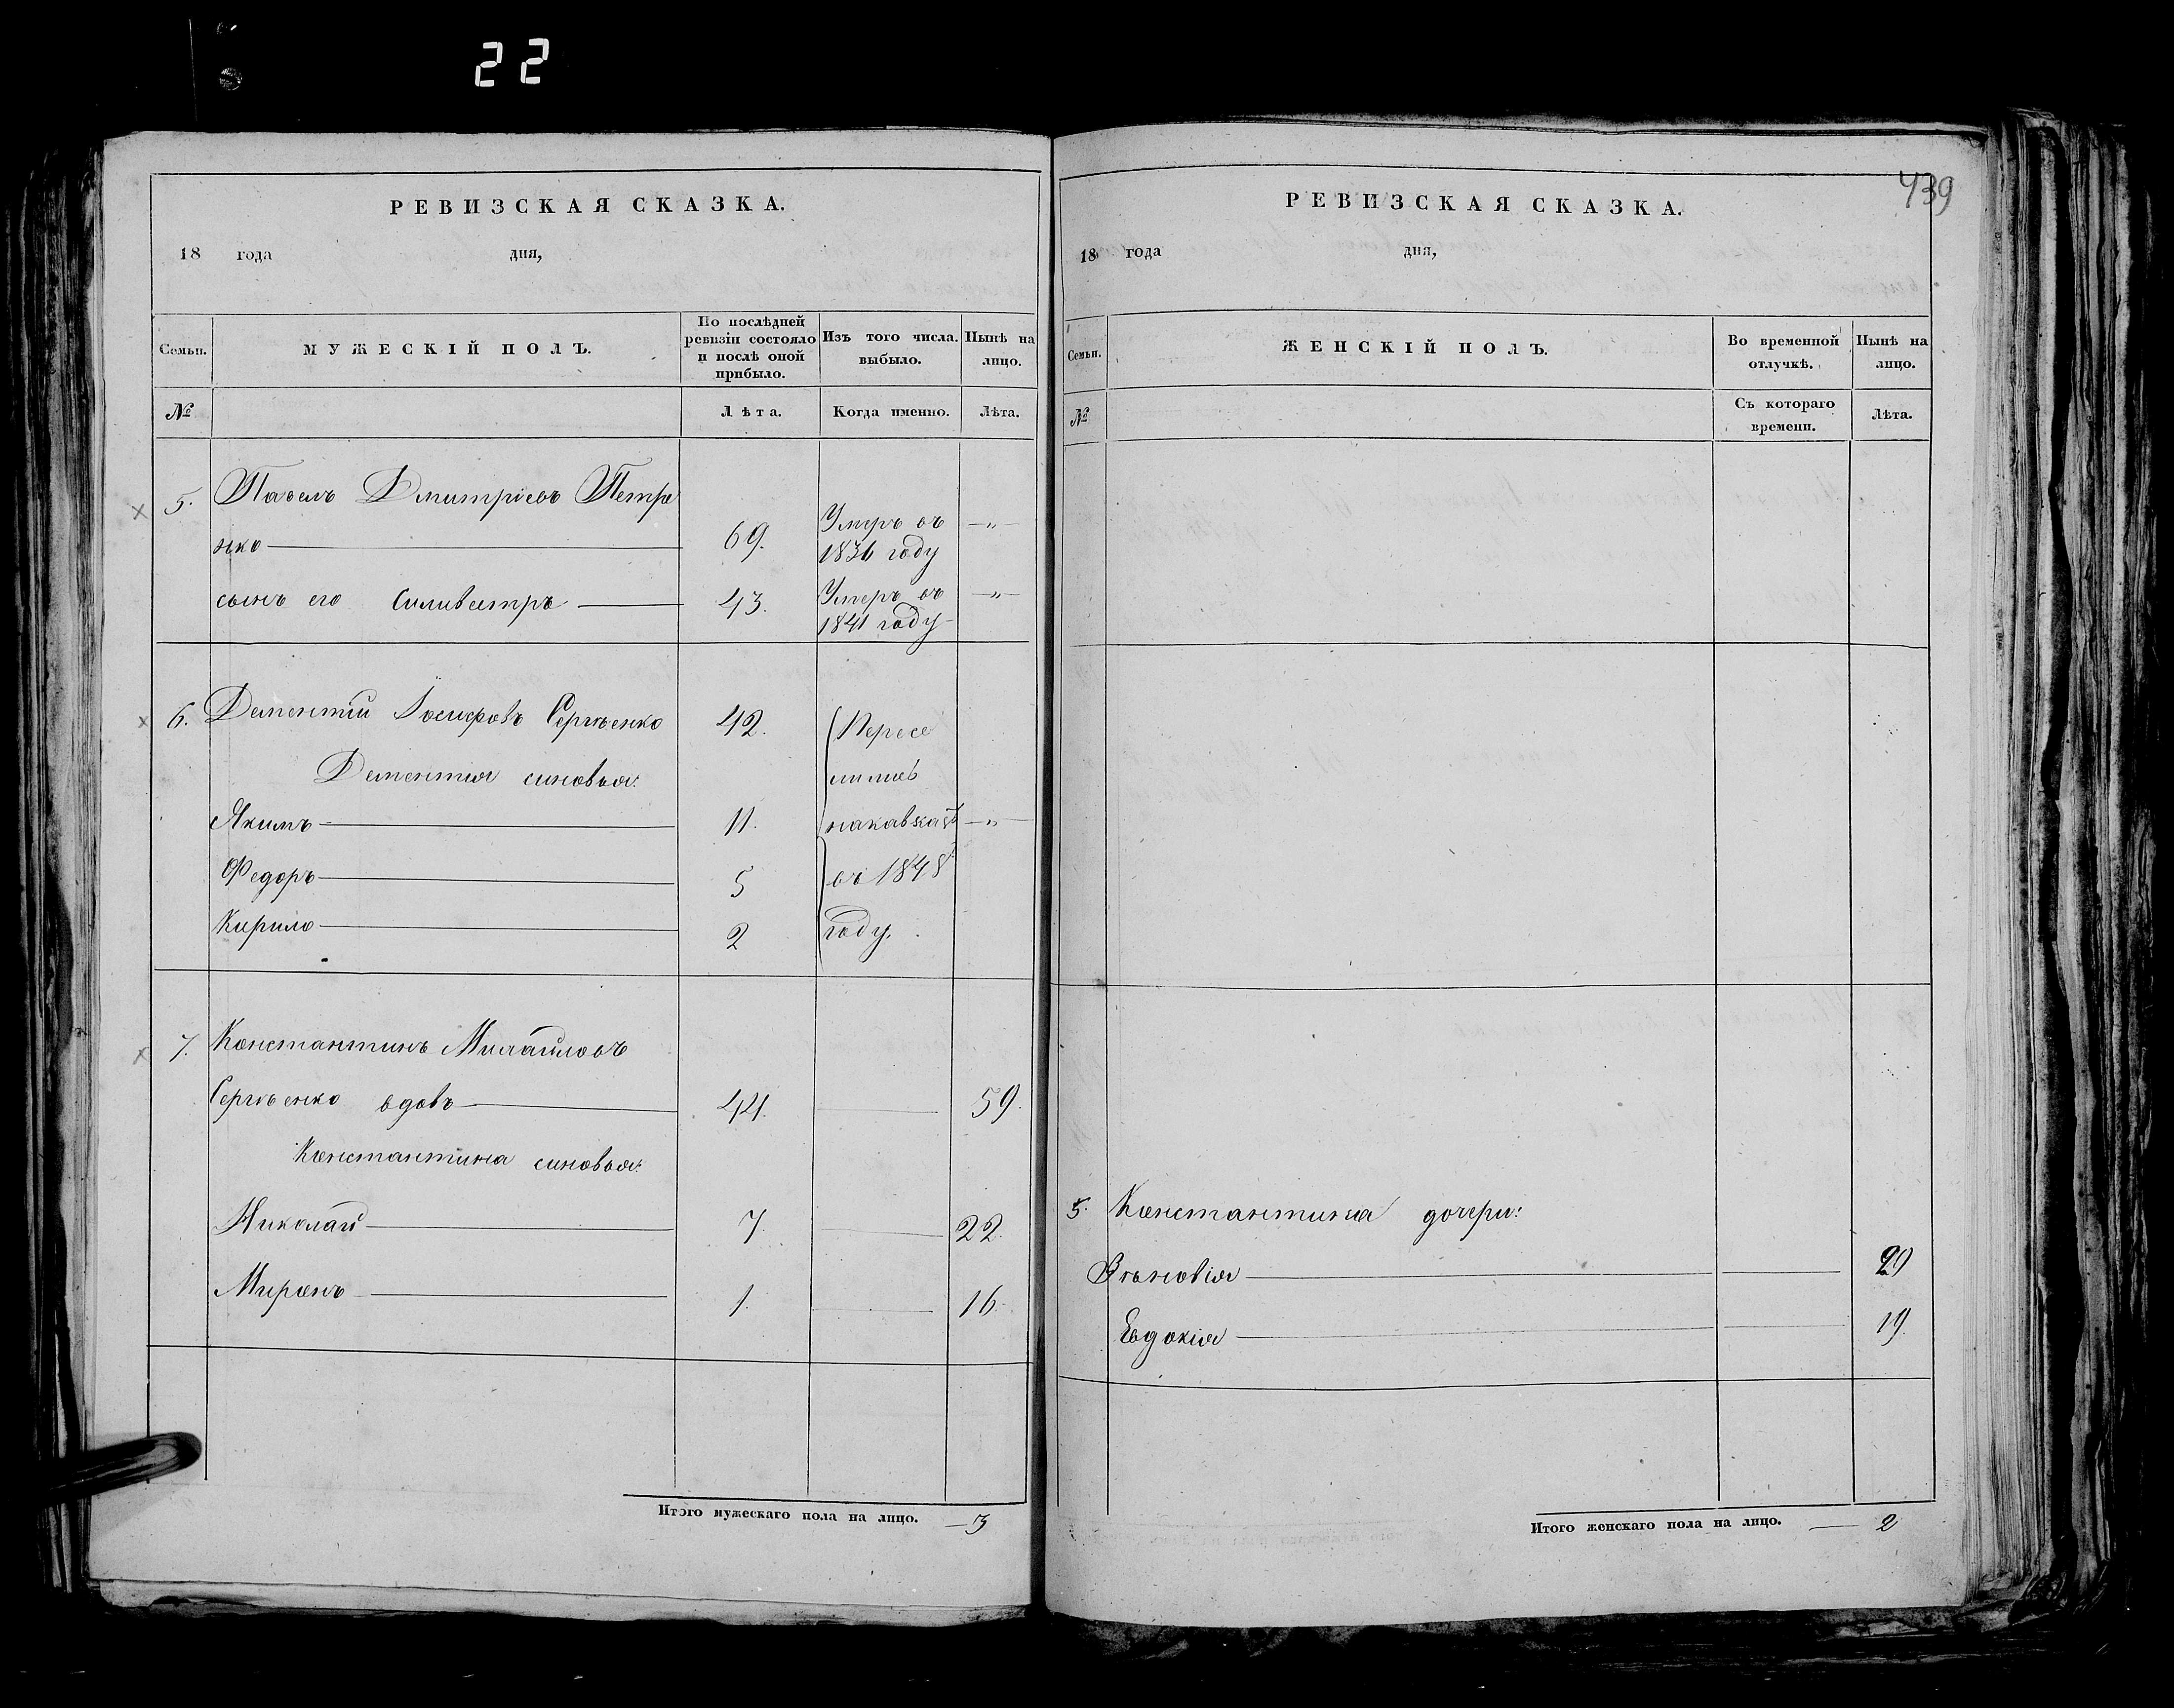 22
РЕВИЗСКАЯ СКАЗКА.
18 года дня,
Семьи. МУЖЕСКІЙ ПОЛЪ. По послѣдней ревизіи состояло и послѣ оной прибыло. Изъ того числа выбыло. Нынѣ на лицо.
№ Лѣта. Когда именно. Лѣта.
5. Павелъ Дмитріевъ Петре
нко 69. Умеръ въ 1836 году —„—
сынъ его Силивестръ 43. Умеръ въ 1841 году —„—
6. Дементій Іосифовъ Сергѣенко 42. Пересе
Дементія синовья: лились
Якимъ 11. накавказъ —„—
Федоръ 5 въ 1848
Кирило 2 году.
7. Константинъ Михайловъ
Сергѣенко вдовъ 44. 59.
Константина синовья:
Николай 7. 22.
Миронъ 1. 16.
Итого мужескаго пола на лицо. — 3
439
РЕВИЗСКАЯ СКАЗКА.
18 года дня,
Семьи. ЖЕНСКІЙ ПОЛЪ. Во временной отлучкѣ. Нынѣ на лицо.
№ Съ котораго времени. Лѣта.
5. Константина дочери:
Зѣновія 29
Евдокія 19.
Итого женскаго пола на лицо. — 2